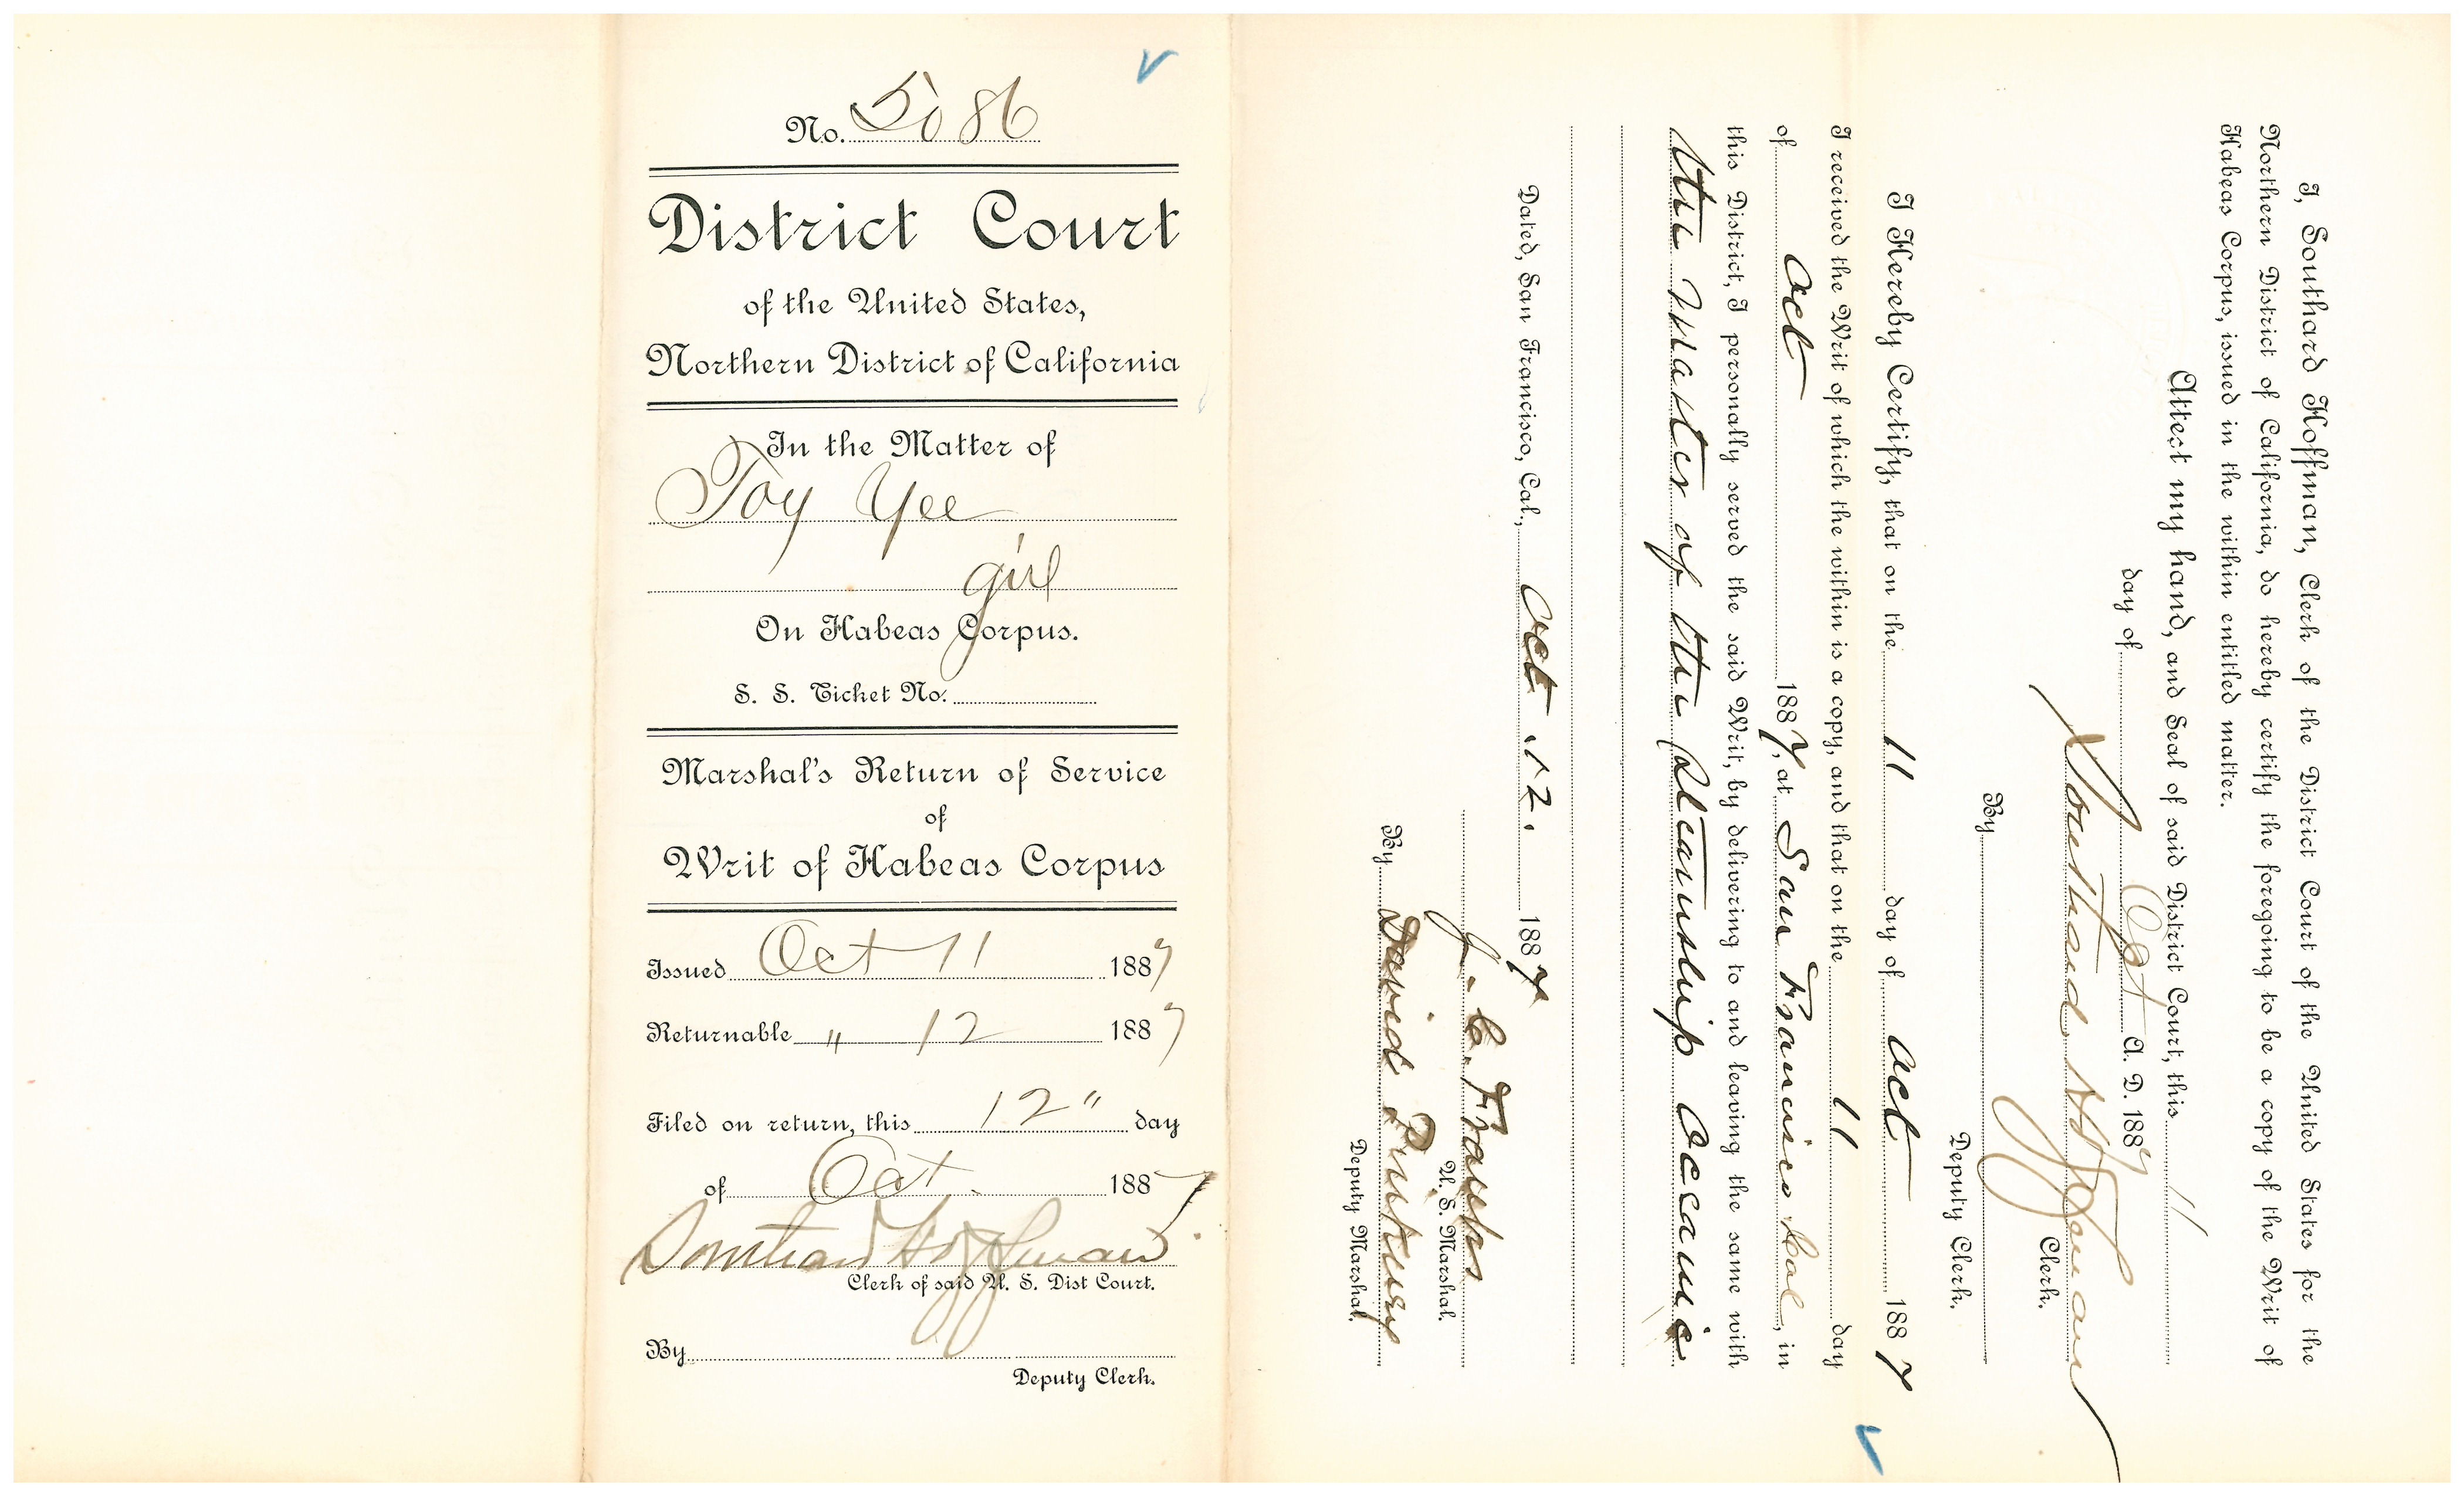 No. 5086
District Court
of the United States,
Northern District of California
In the Matter of
Toy Yee
girl
On Habeas Corpus.
S. S. Ticket No.
Marshal's Return of Service
of
Writ of Habeas Corpus
Issued Oct 11 1887
Returnable " 12 1887
Filed on return, this 12" day
of Oct. 1887
Southard Hoffman
Clerk of said U. S. Dist Court.
By
Deputy Clerk.
I, Southard Hoffman, Clerk of the District Court of the United States for the
Northern District of California, do hereby certify the foregoing to be a copy of the Writ of
Habeas Corpus, issued in the within entitled matter.
Attest my hand, and Seal of said District Court, this 11
day of Oct A. D. 1887
Southard Hoffman
Clerk.
By
Deputy Clerk.
I Hereby Certify, that on the 11 day of Oct 1887
I received the Writ of which the within is a copy, and that on the 11 day
of Oct 1887, at San Francisco Cal, in
this District, I personally served the said Writ, by delivering to and leaving the same with
the Master of the Steamship Oceanic
Dated, San Francisco, Cal., Oct. 12. 1887
J. C. Franks
U. S. Marshal.
By David Drury
Deputy Marshal.